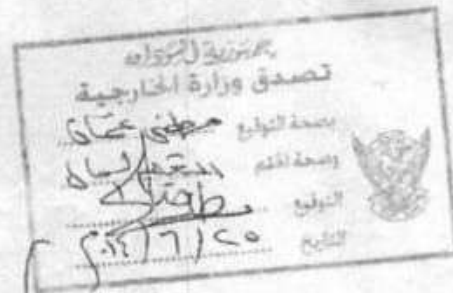 جمهورية السودان
تصدق وزارة الخارجية
بصحة التوقيع مصطفى عثمان
وصحة الختم
التوقيع
التاريخ ٢٥/٦/٢٠١٤